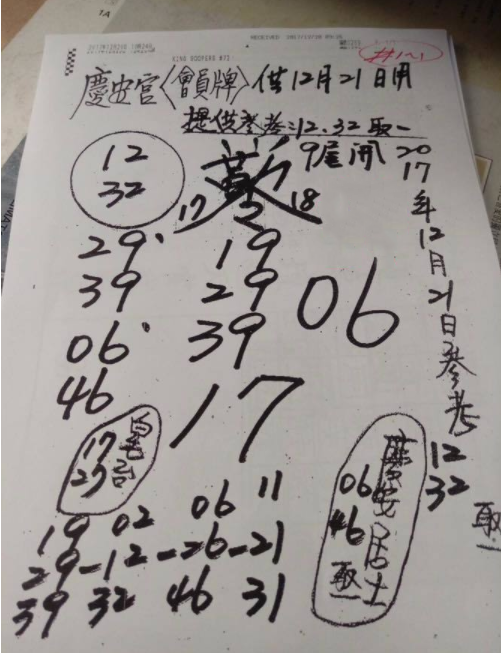 慶安宮〈會員牌〉供12月21日用
提供參考:12.32取一
9尾開
2017年12月21日參考
12
32
17
18
29
39
06
46
19
29
39
06
17
17
27
19 02 06 11
29-12-26-21
39 32 46 31
慶安居士
06
46
取一
12
32
取一